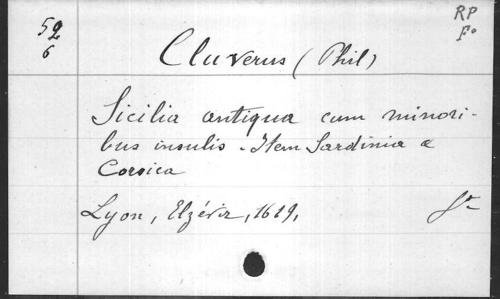 52
6
RP
F°
Cluverus (Phil)
Sicilia antiqua cum minori-
bus insulis. Item Sardinia &
Corsica
Lyon, Elzévir, 1619,